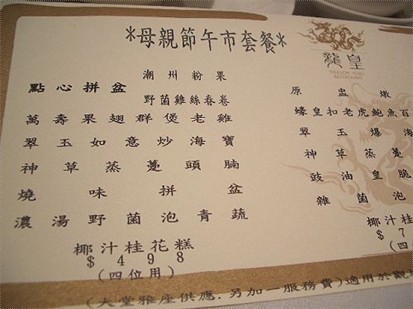 *母親節午市套餐*
龍皇
潮州粉果
點心拼盆
野菌雞絲春卷
萬壽果翅群煲老雞
翠玉如意炒海寶
神草蒸躉頭腩
燒味拼盆
濃湯野菌泡青蔬
椰汁桂花糕
$498
(四位用)
(大堂雅座供應,另加一服務費)適用於
原盅燉
蠔皇扣老虎鮑
翠玉爆海
神草蒸躉
豉油皇脆
雜菌泡
椰汁桂
$7
(四